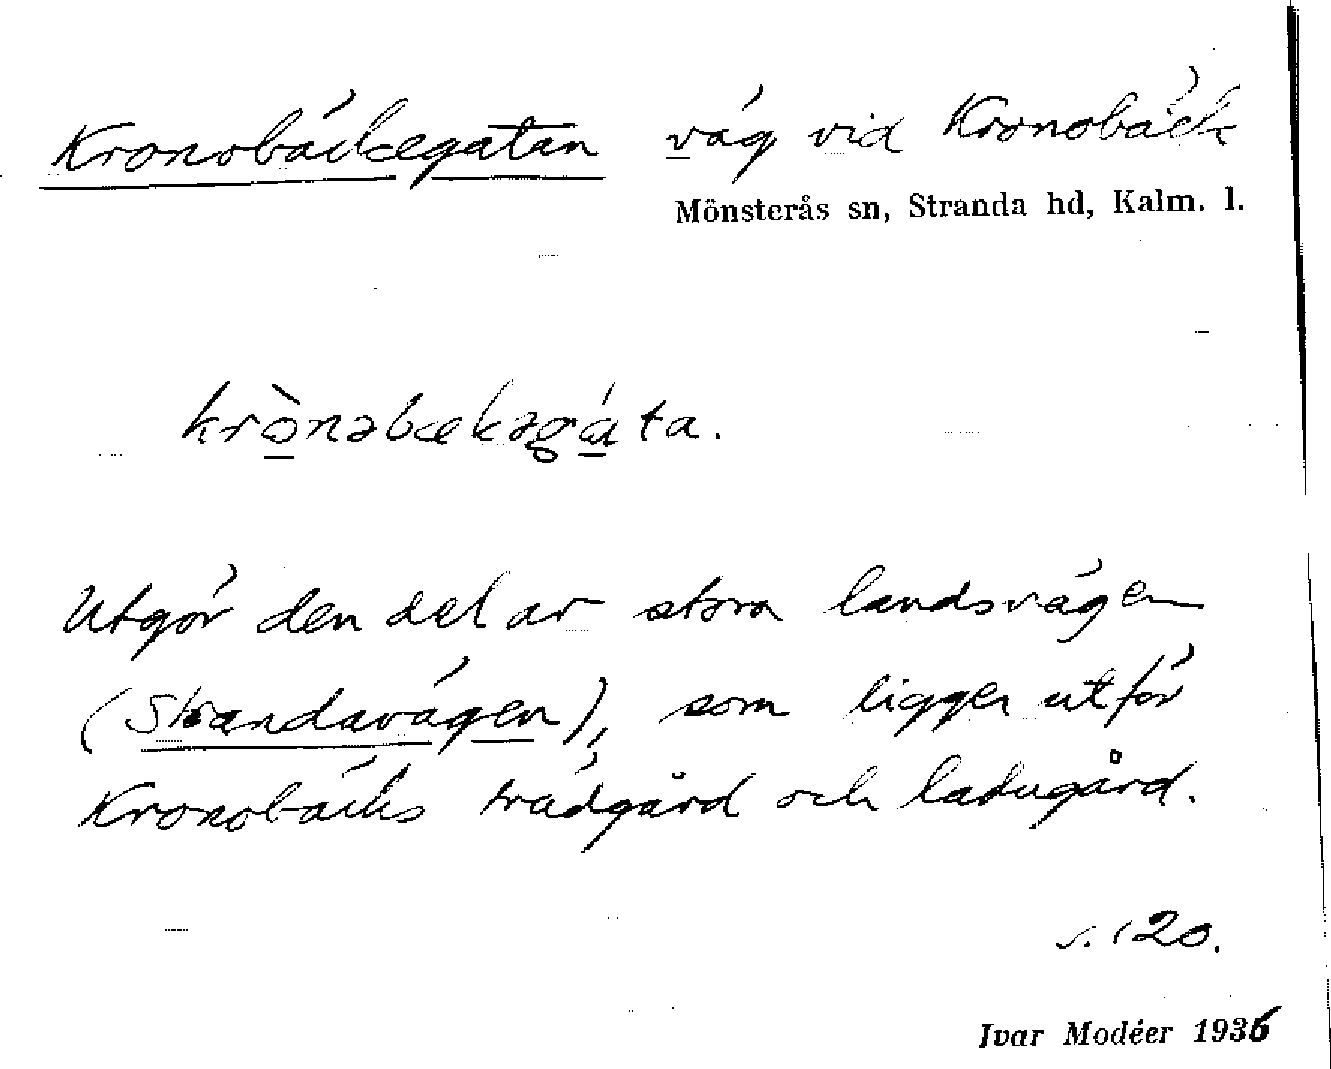 Kronobäckegatan väg vid Kronobäck
Mönsterås sn, Stranda hd, Kalm. l.
krònəbækəgáta.
Utgör den del av stora landsvägen
(Strandavägen), som ligger utför
Kronobäcks trädgård och ladugård.
s. 120.
Ivar Modéer 1936